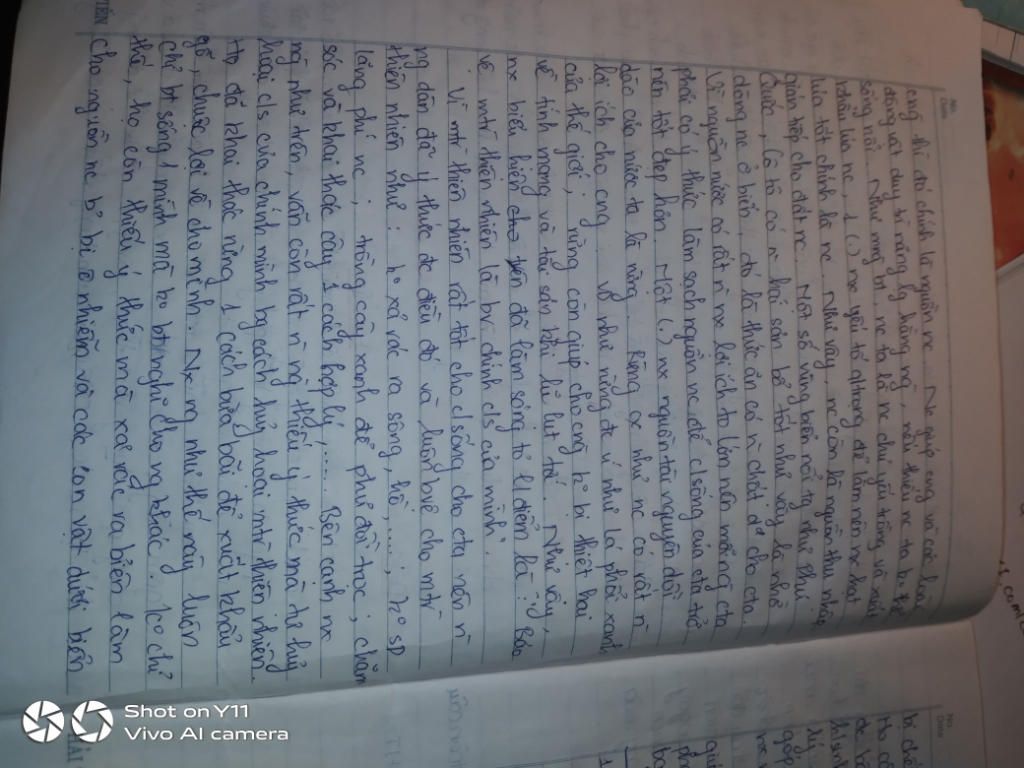 No.
Date
cũng thì đó chính là nguồn nc. Nc giúp cng và các loài
động vật duy trì năng lg hằng ng, nếu thiếu nc ta k thể
sống nổi. Như mng bt, nc ta là nc chủ yếu trồng và xuất
khẩu lúa nc, 1 (.) nx yếu tố qtrọng để làm nên nx hạt
lúa tốt chính là nc. Như vậy, nc còn là nguồn thu nhập
gián tiếp cho đất nc. Một số vùng biển nổi tg như Phú
Quốc, Cô tô có n hải sản bổ tốt như vậy là nhờ
dòng nc ở biển, đó là thức ăn có n chất d² cho cta.
Vì nguồn nước có rất n nx lợi ích to lớn nên mỗi ng cta
phải có ý thức làm sạch nguồn nc để c/sống của cta trở
nên tốt đẹp hơn. Một (.) nx nguồn tài nguyên dồi
dào của nước ta là rừng. Rừng ox như nc có rất n
lợi ích cho cng. Vd như rừng đc ví như lá phổi xanh
của thế giới; rừng còn giúp cho cng k° bị thiệt hại
về tính mạng và tài sản khi lũ lụt tới. Như vậy,
nx biểu hiện trên đã làm sáng tỏ l/điểm là: Bảo
vệ mtr thiên nhiên là bv chính c/s của mình.
Vì mtr thiên nhiên rất tốt cho c/sống cho cta nên n
ng dân đã ý thức đc điều đó và luôn bvệ cho mtr
thiên nhiên như: k° xả rác ra sông, hồ,...; k° sd
lãng phí nc; trồng cây xanh để phủ đồi trọc; chăm
sóc và khai thác cây 1 cách hợp lý.... Bên cạnh nx
ng như trên, vẫn còn rất n ng thiếu ý thức mà tự hủy
hoại c/s của chính mình bg cách huỷ hoại mtr thiên nhiên.
Họ đã khai thác rừng 1 cách bừa bãi để xuất khẩu
gỗ, chuộc lợi về cho mình. Nx ng như thế này luôn
chỉ bt sống 1 mình mà k° bt nghĩ cho ng khác. K° chỉ
thế, họ còn thiếu ý thức mà xả rác ra biển làm
cho nguồn nc bị ô nhiễm và các con vật dưới biển
No.
Date
bị chế
Shot on Y11
Vivo AI camera